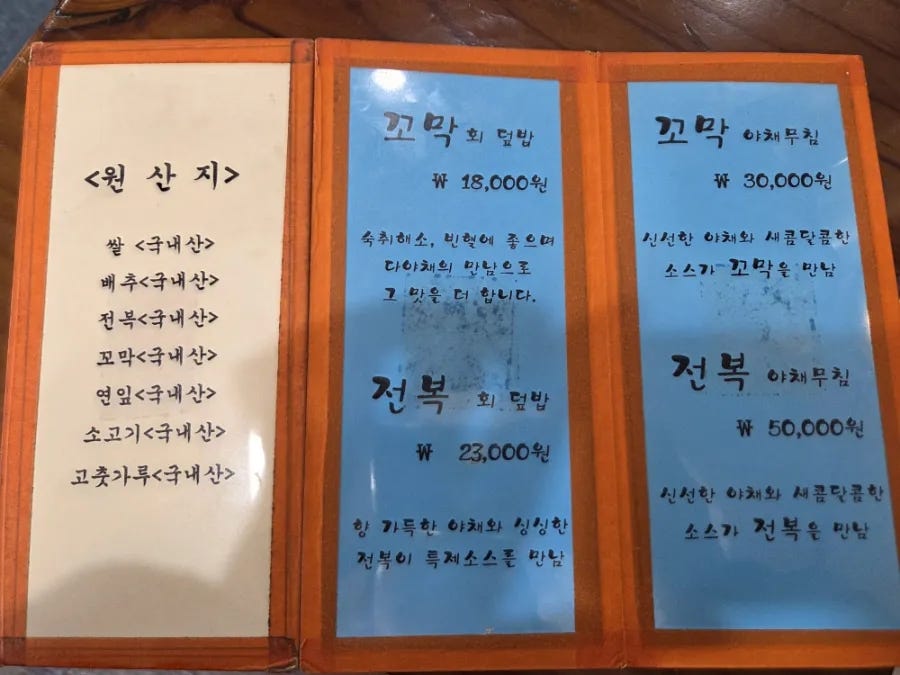 <원 산 지>
쌀 <국내산>
배추<국내산>
전복<국내산>
꼬막<국내산>
연잎<국내산>
소고기<국내산>
고춧가루<국내산>
꼬막 회 덮밥
₩ 18,000원
숙취해소, 빈혈에 좋으며
다야채의 만남으로
그 맛을 더 합니다.
전복 회 덮밥
₩ 23,000원
향 가득한 야채와 싱싱한
전복이 특제소스를 만남
꼬막 야채무침
₩ 30,000원
신선한 야채와 새콤달콤한
소스가 꼬막을 만남
전복 야채무침
₩ 50,000원
신선한 야채와 새콤달콤한
소스가 전복을 만남